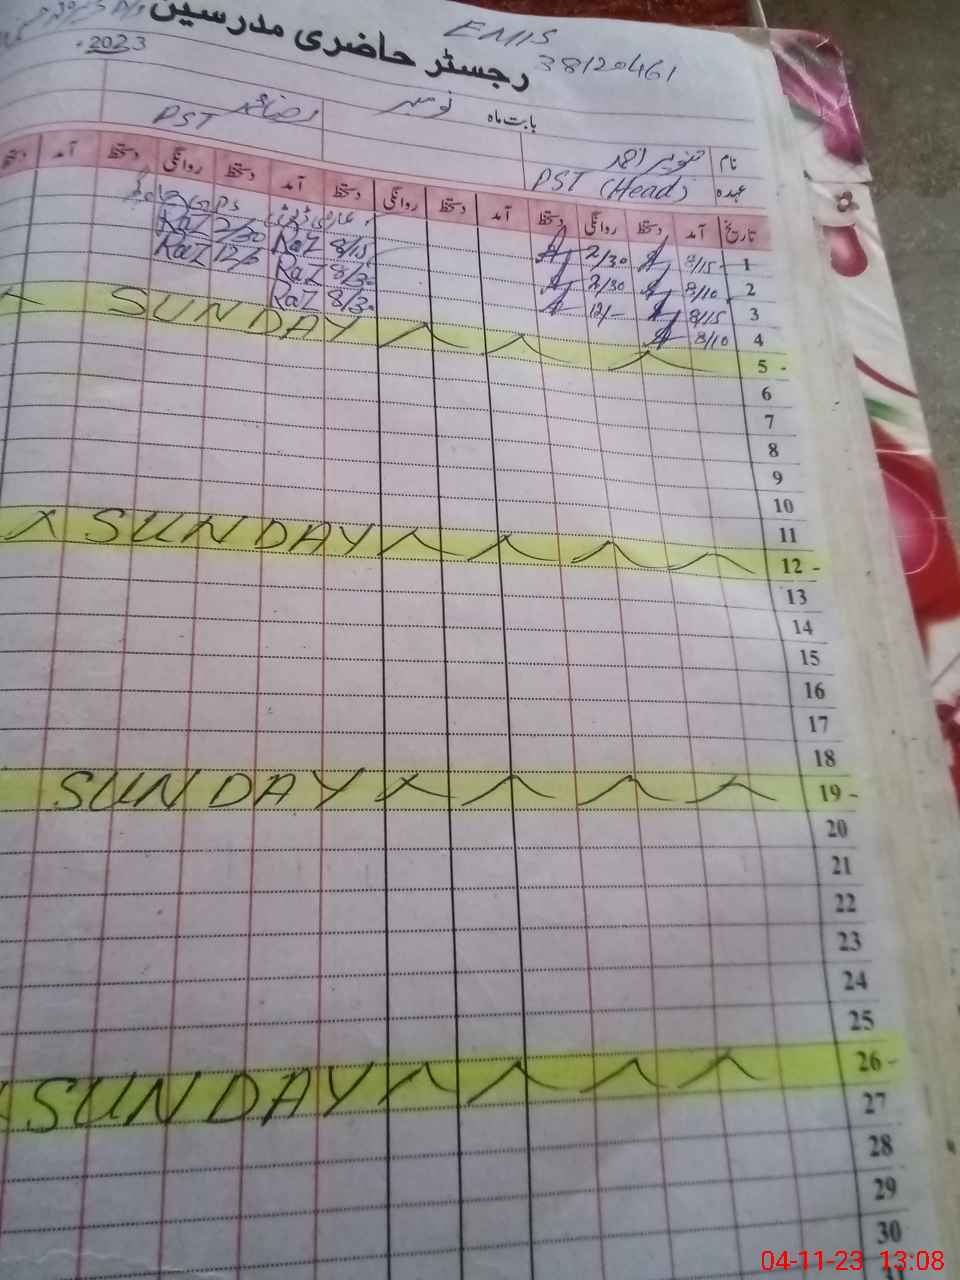 رجسٹر حاضری مدرسین
EMIS
38120461
2023
بابت ماہ نومبر
نام تنویر احمد
عہدہ PST (Head)
PST
تاریخ آمد دستخط روانگی دستخط آمد دستخط روانگی دستخط آمد دستخط روانگی دستخط آمد دستخط
1 8/15 2/30
2 8/10 2/30 RaZ 8/15 RaZ 2/30
3 8/15 12/- RaZ 8/30 RaZ 12/
4 8/10 RaZ 8/30
5 - SUNDAY
6
7
8
9
10
11
12 - SUNDAY
13
14
15
16
17
18
19 - SUNDAY
20
21
22
23
24
25
26 - SUNDAY
27
28
29
30
04-11-23 13:08